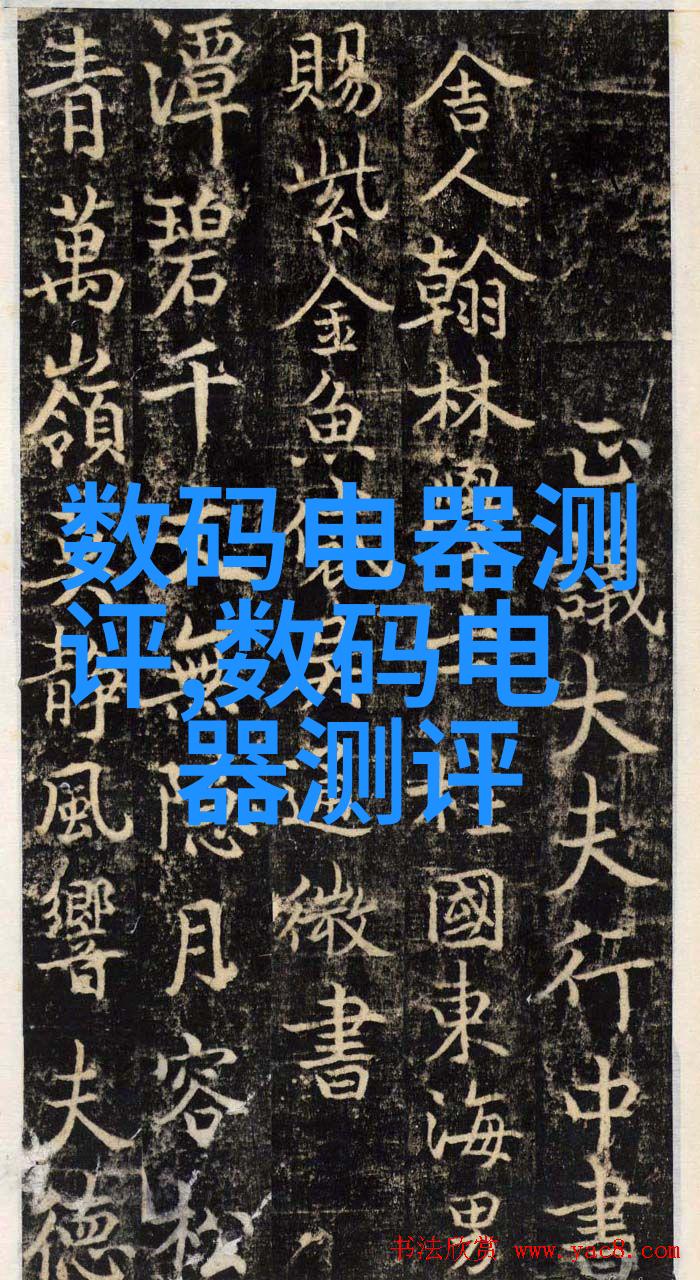 正議大夫行中書
舍人翰林學士柱國東海男
賜紫金魚袋吳通微書
潭碧千丈無隱月容松
青萬嶺靜風響夫德
数码电器测
评,数码电
器测评
书法欣赏 www.yac8.com